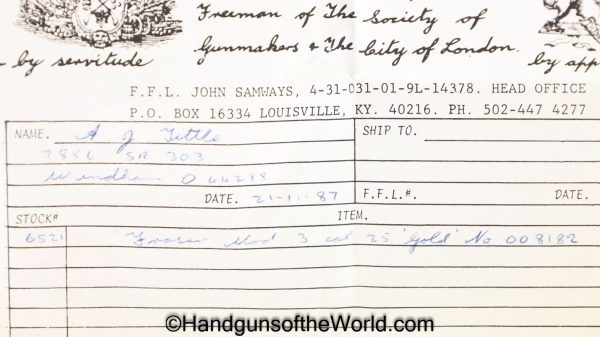 Freeman of The Society of
Gunmakers & The City of London.
by servitude
by app
F.F.L. JOHN SAMWAYS, 4-31-031-01-9L-14378. HEAD OFFICE
P.O. BOX 16334 LOUISVILLE, KY. 40216. PH. 502-447 4277
NAME. A J Tittle SHIP TO.
7886 SR 303
Windham O 44288
DATE. 21-11-87 F.F.L.#. DATE.
STOCK# ITEM.
6521 Fraser Mod 3 cal 25 'Gold' No 008182
©HandgunsoftheWorld.com